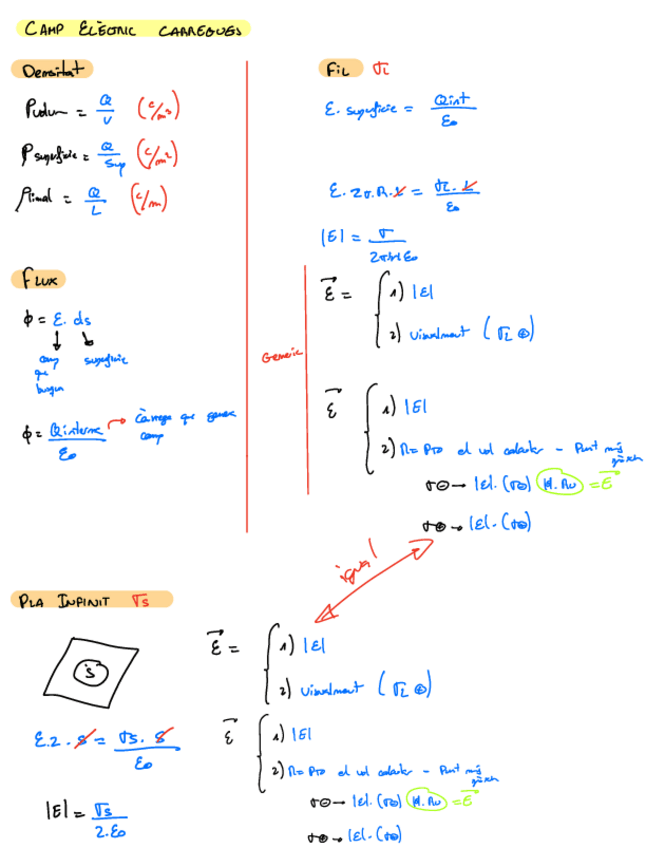 CAMP ELÈCTRIC CARREGUES
Densitat
ρvolum = Q/V (C/m³)
ρsuperficie = Q/Sup (C/m²)
ρlineal = Q/L (C/m)
Flux
ϕ = E. ds
camp que busquem
superficie
ϕ = Qinterna/ε₀ → Càrrega que genera camp
Generic
FIL σL
E. superficie = Qint/ε₀
E. 2π.R.L = σL. L/ε₀
|E| = σ/2π|r|ε₀
E⃗ =
1) |E|
2) visualment (σL ⊕)
E⃗
1) |E|
2) R = PTO el vol calcular - Punt més
σ⊖ → |E|. (σ⊖) = E⃗
σ⊕ → |E|. (σ⊕)
igual
PLA INFINIT σs
S
E.2. S = σs. S/ε₀
|E| = σs/2.ε₀
E⃗ =
1) |E|
2) visualment (σL ⊕)
E⃗
1) |E|
2) R = PTO el vol calcular - Punt més
σ⊖ → |E|. (σ⊖) = E⃗
σ⊕ → |E|. (σ⊕)